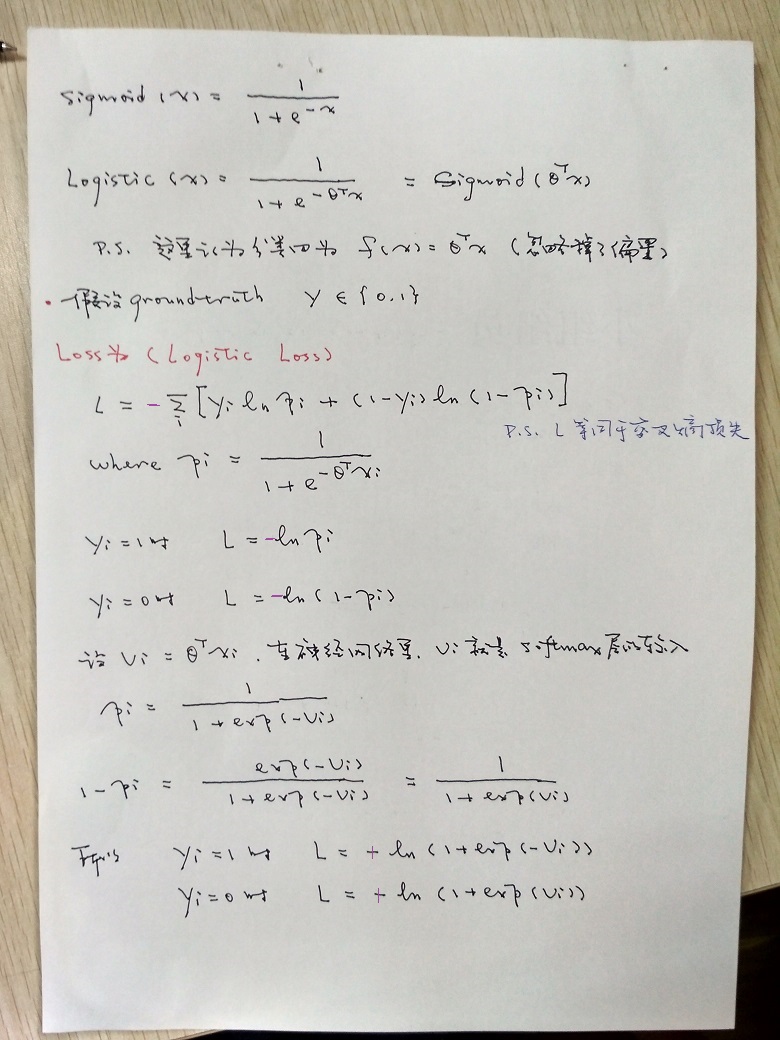 Sigmoid (x) = 1 / (1 + e^{-x})
Logistic (x) = 1 / (1 + e^{-θ^T x}) = Sigmoid (θ^T x)
P.S. 这里认为分类面为 f(x) = θ^T x (忽略掉了偏置)
· 假设 groundtruth y ∈ {0,1}
Loss为 (Logistic Loss)
L = - Σ_i [yi ln pi + (1-yi) ln (1-pi)]
P.S. L 等同于交叉熵损失
where pi = 1 / (1 + e^{-θ^T xi})
yi = 1 时 L = -ln pi
yi = 0 时 L = -ln (1-pi)
设 vi = θ^T xi . 在神经网络里, vi 就是 softmax层的输入
pi = 1 / (1 + exp(-vi))
1-pi = exp(-vi) / (1 + exp(-vi)) = 1 / (1 + exp(vi))
yi = 1 时 L = + ln (1 + exp(-vi))
yi = 0 时 L = + ln (1 + exp(vi))